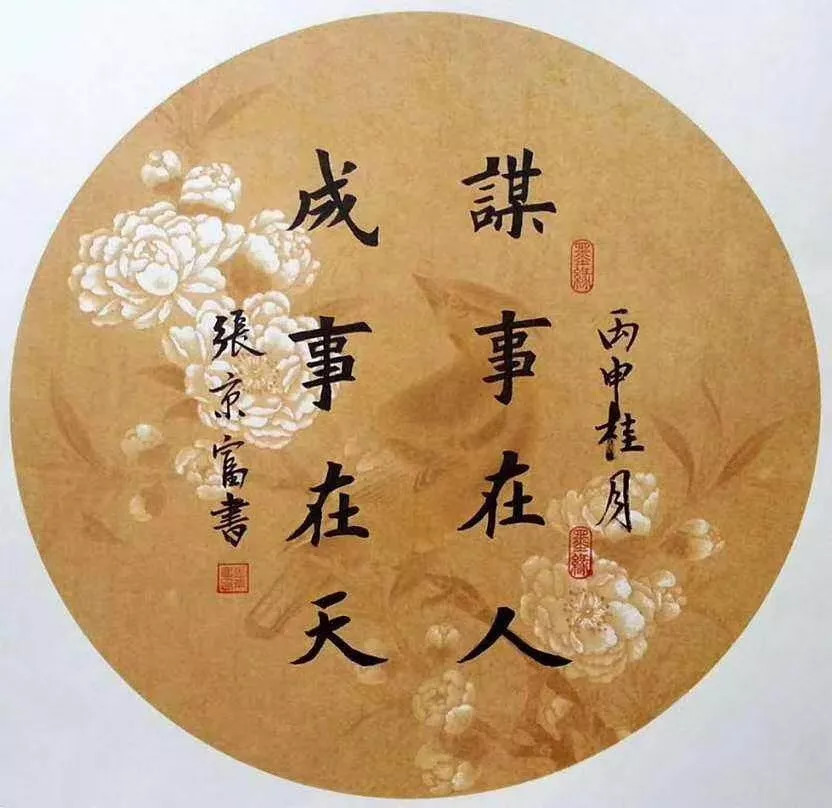 丙申桂月
謀事在人
成事在天
張京富書
墨緣
墨緣